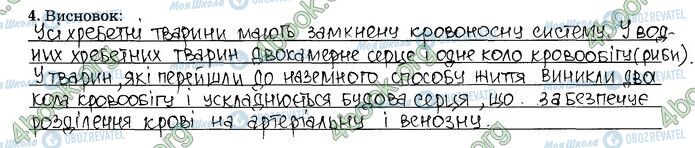 4. Висновок:
Усі хребетні тварини мають замкнену кровоносну систему. У вод-
них хребетних тварин двокамерне серце і одне коло кровообігу (риби).
У тварин, які перейшли до наземного способу життя виникли два
кола кровообігу і ускладнюється будова серця, що забезпечує
розділення крові на артеріальну і венозну.